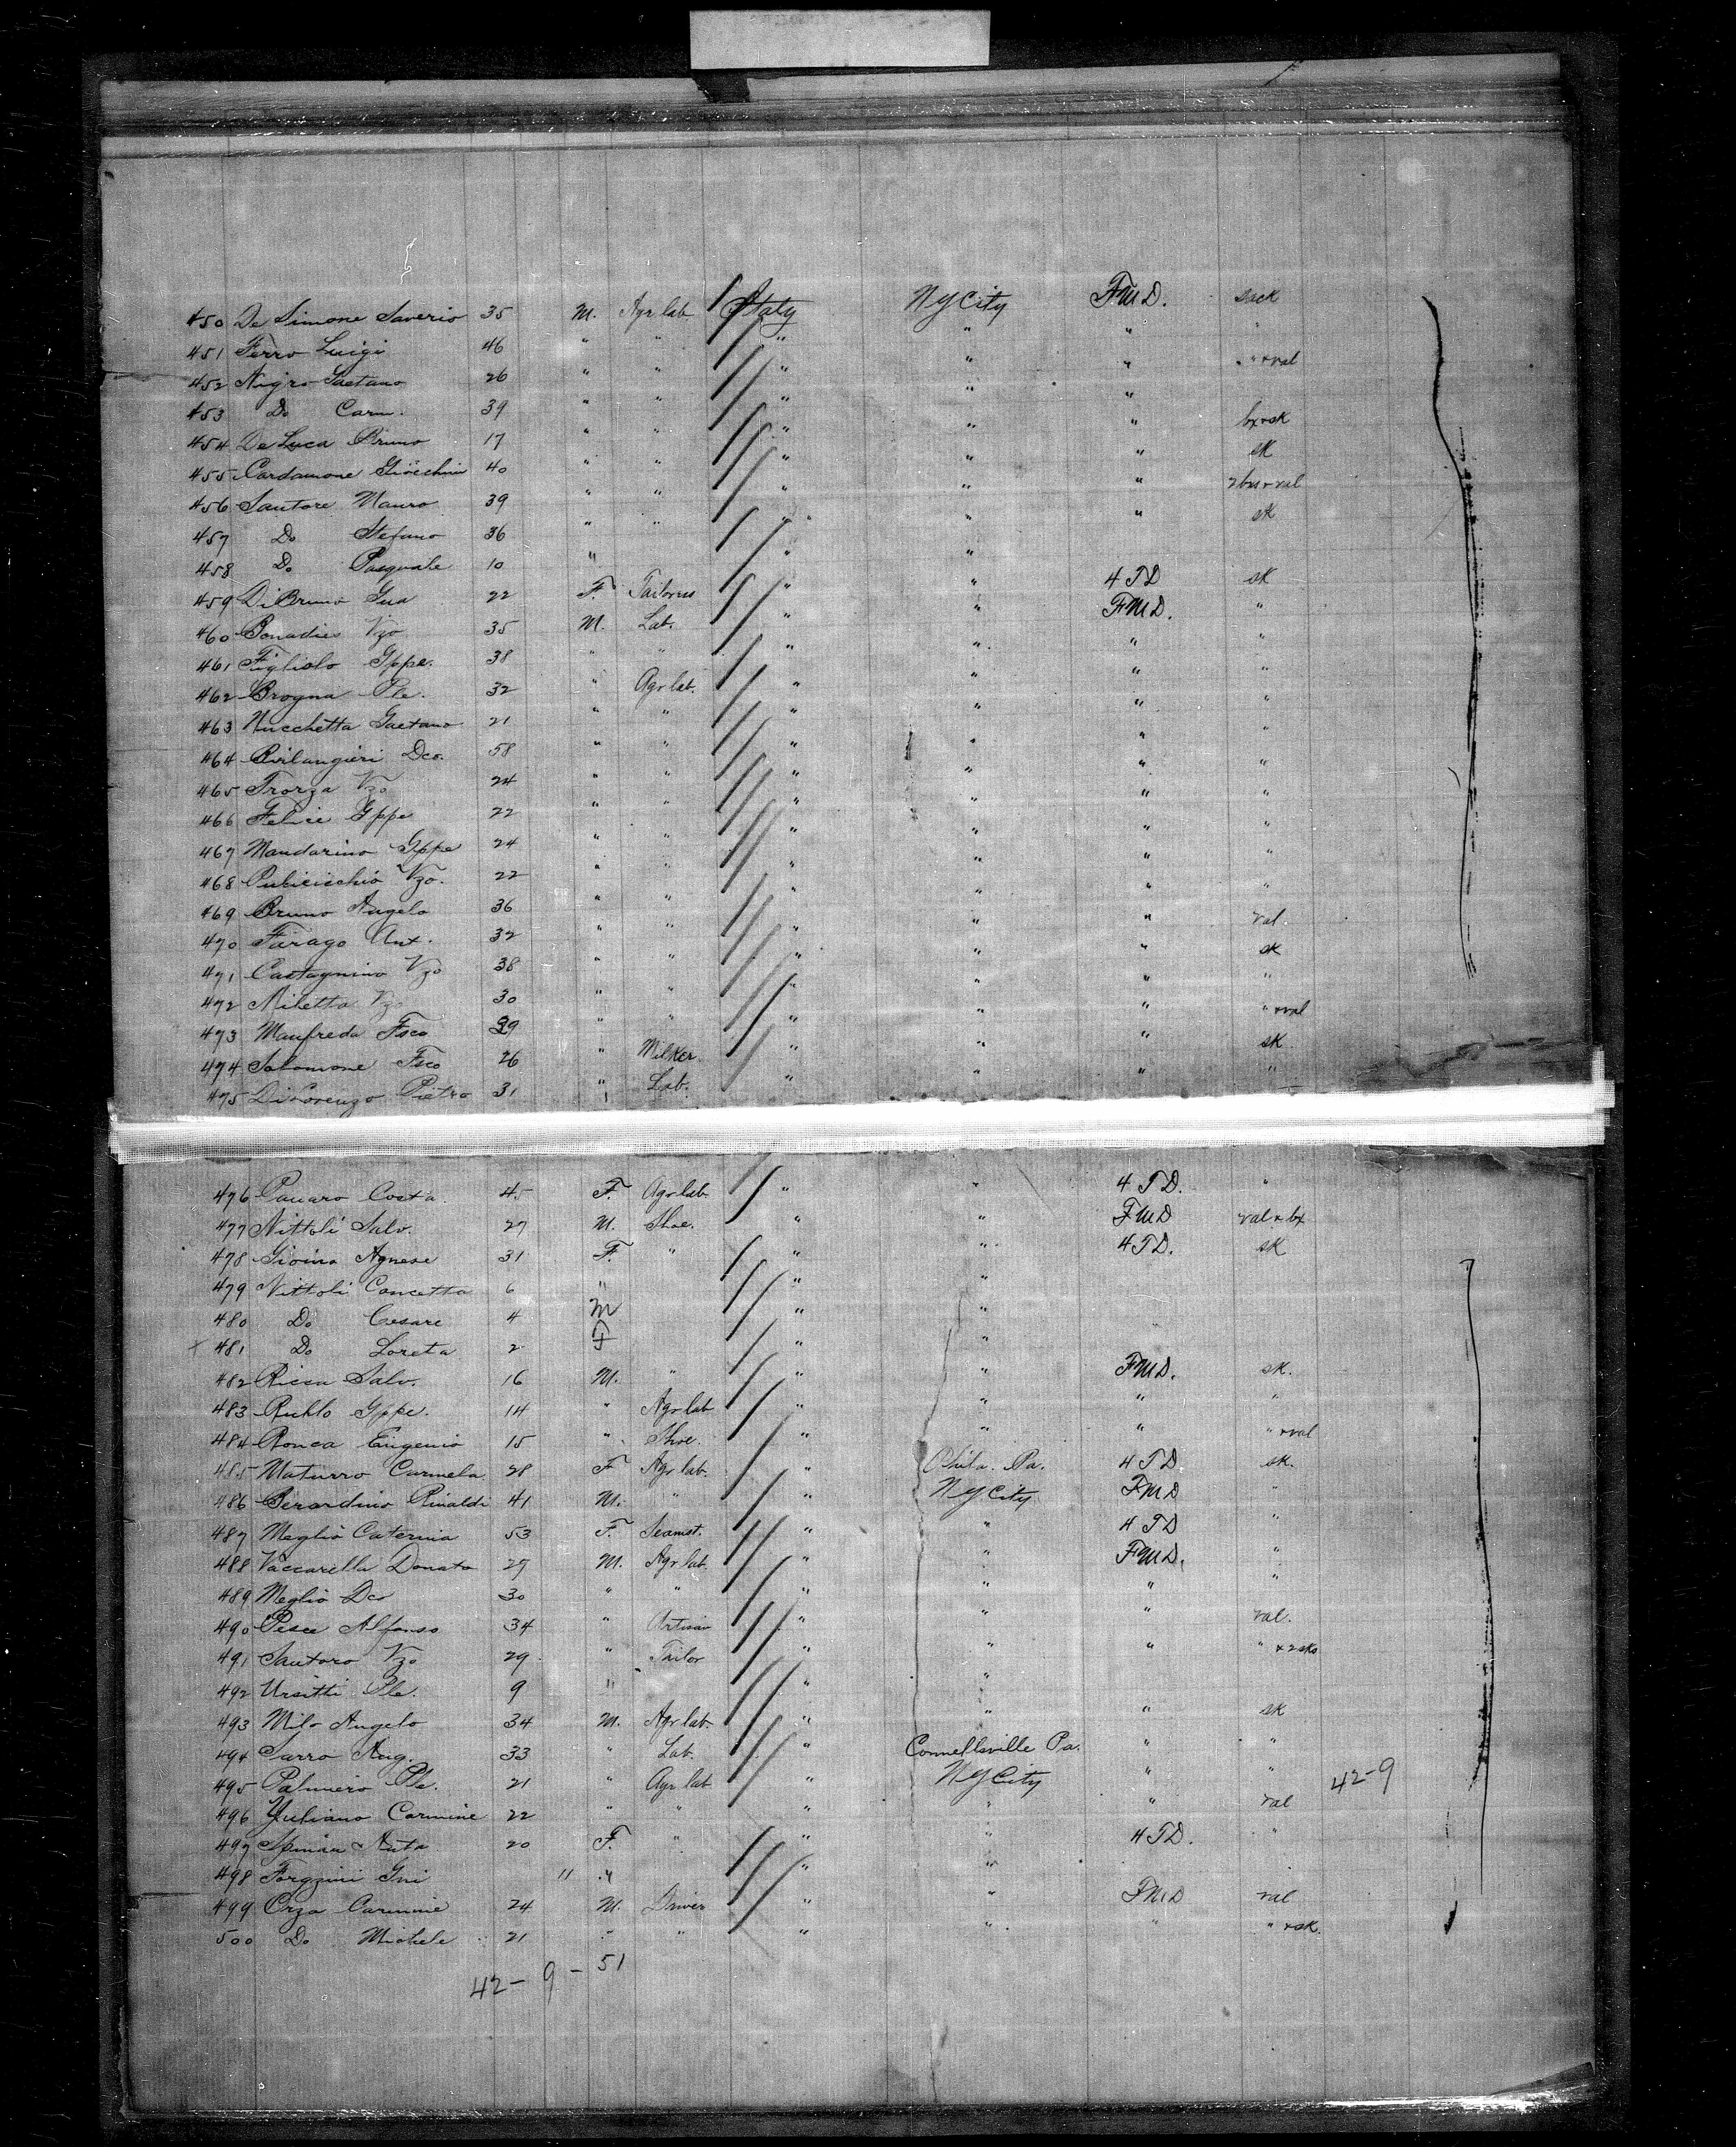 450 De Simone Saverio 35 M. Agr lab Italy NY City FMD. sack
451 Ferro Luigi 46 " " " " " "
452 Nigro Gaetano 26 " " " " " " + val
453 Do Carm. 39 " " " "
454 De Luca Bruno 17 " " " " " bx + sk
455 Cardamone 40 " " " " " sk
456 Santore Mauro 39 " " " " " + val
457 Do Stefano 36 " " " " " sk
458 Do Pasquale 10 " " "
459 DiBruno 22 F. Tailoress " " 4TD sk
460 Bonadies Vzo 35 M. Lab. " " FMD. "
461 Figliolo Gppe. 38 " " " " " "
462 Brogna Ple. 32 " Agr lab. " " " "
463 Nucchetta Gaetano 21 " " " " " "
464 Dco. 58 " " " " " "
465 Vzo 24 " " " " " "
466 Felice Gppe 22 " " " " " "
467 Mandarino Gppe 24 " " " " " "
468 Vzo. 22 " " " " " "
469 Bruno Angelo 36 " " " " " "
470 Farago Ant. 32 " " " " " val.
471 Castagnino Vzo 38 " " " " " sk
472 Miletta Vzo 30 " " " " " "
473 Manfreda Fsco 39 " " " " " " + val
474 Salomone Fsco 26 " Milker. " " " sk
475 DiLorenzo Pietro 31 " Lab. " " " "
476 Panaro Costa. 45 F. Agr lab. " " 4TD. "
477 Nittoli Salv. 27 M. Shoe. " " FMD val + bx
478 Gioino Agnese 31 F. " " " 4TD. sk
479 Nittoli Concetta 6 " " "
480 Do Cesare 4 M " "
481 Do Loreta 2 F " "
482 Ricca Salv. 16 M. " " " FMD. sk.
483 Gppe. 14 " Agr lab " " " "
484 Ronca Eugenio 15 " Shoe. " " " " + val
485 Maturro Carmela 28 F Agr lab. " Phila. Pa. 4TD. sk.
486 Berardino Rinaldi 41 M. " " NY City FMD "
487 Meglio Caterina 53 F. Seamst. " " 4TD "
488 Vaccarella Donato 27 M. Agr lab. " " FMD. "
489 Meglio Dco 30 " " " " " "
490 Pesce Alfonso 34 " Artisan " " " val.
491 Santoro Vzo 29 " Tailor " " " " + 2 sks
492 Ursitti Ple. 9 " " "
493 Milo Angelo 34 M. Agr lab. " " " sk
494 Sarro Aug. 33 " Lab. " Connellsville Pa. " "
495 Palmiero Ple. 21 " Agr lab " NY City " " 42-9
496 Yuliano Carmine 22 " " " " " val
497 20 F. " " " 4TD. "
498 11 " " "
499 Orza Carmine 24 M. Driver " " FMD val
500 Do Michele 21 " " " " " " + sk.
42 - 9 - 51